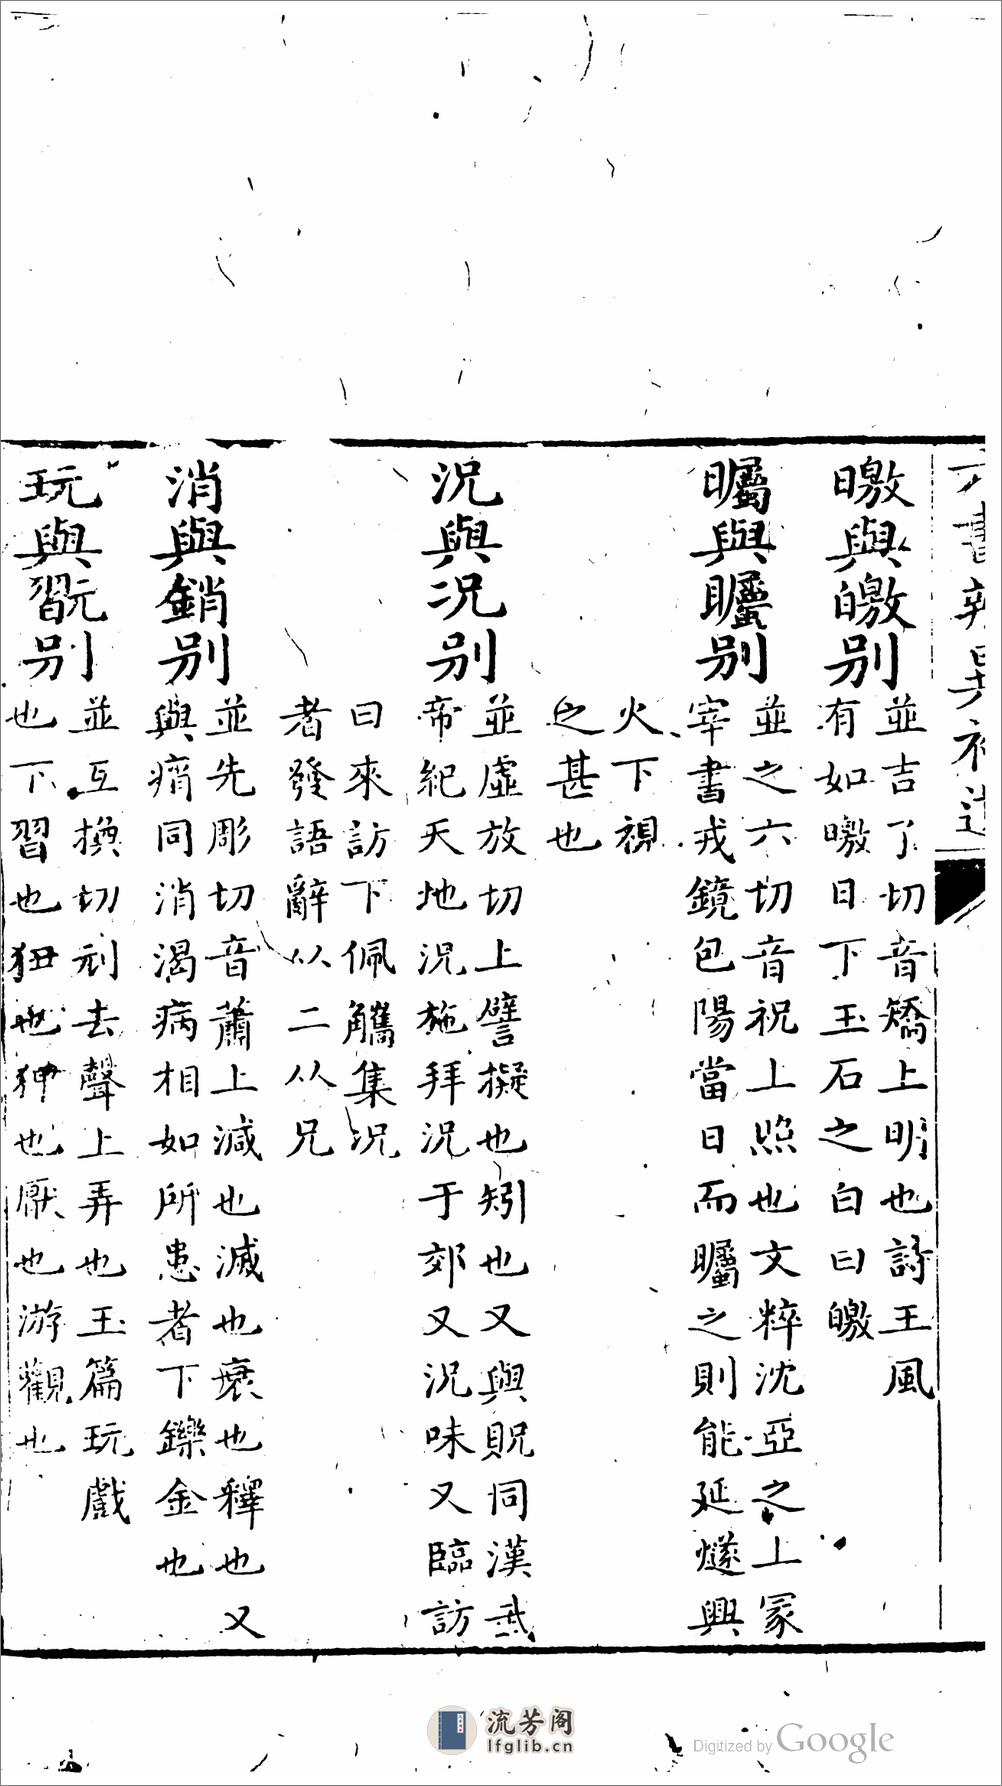 六書辨異補遺
曒與皦別
並吉了切音矯上明也詩王風
有如曒日下玉石之白曰皦
曯與矚別
並之六切音祝上照也文粹沈亞之上冢
宰書戎鏡包陽當日而曯之則能延燧興
火下視
之甚也
況與况別
並虛放切上譬擬也矧也又與貺同漢武
帝紀天地況施拜況于郊又況味又臨訪
曰來訪下佩觿集况
者發語辭从二从兄
消與銷別
並先彫切音蕭上減也滅也衰也釋也又
與痟同消渴病相如所患者下鑠金也
玩與翫別
並互換切刓去聲上弄也玉篇玩戲
也下習也狃也狎也厭也游觀也
流芳阁
lfglib.cn
Digitized by Google